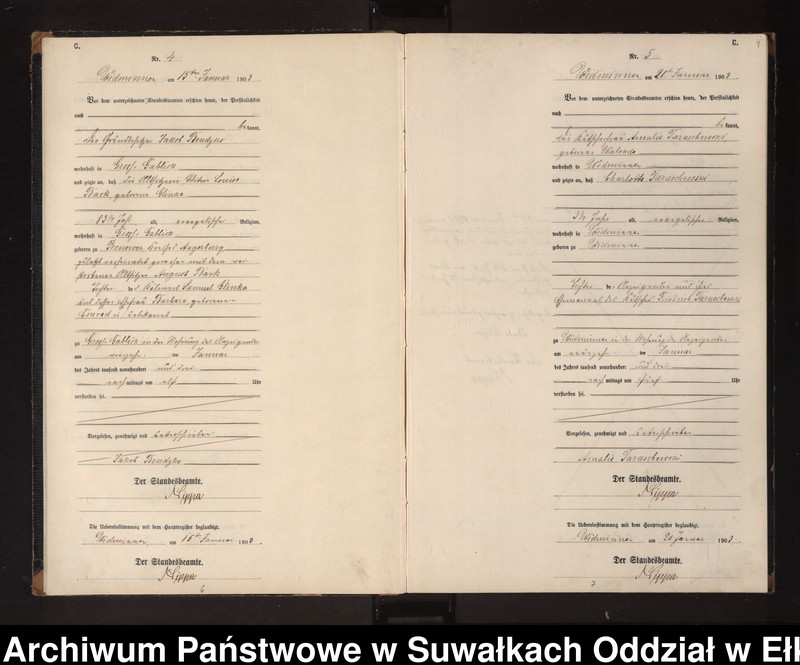 C.
Nr. 4
Widminnen am 15ten Januar 1903
Vor dem unterzeichneten Standesbeamten erschien heute, der Persönlichkeit
nach
bekannt,
der Grundbesitzer Jakob Bendzko
wohnhaft in Gross Gablick
und zeigte an, daß die Altsitzerin Louise
Bark, geborene Glinka
83¾ Jahr alt, evangelischer Religion,
wohnhaft in Gross Gablick
geboren zu Kreises Angerburg
zuletzt verheirathet gewesen mit dem ver
storbenen Altsitzer August Bark
Tochter des Samuel Glinka
und dessen Ehefrau Barbara geborenen
Conrad
zu Gross Gablick in der Wohnung des Anzeigenden
am Januar
des Jahres tausend neunhundert und drei
nachmittags um elf Uhr
verstorben sei.
Vorgelesen, genehmigt und unterschrieben
Jakob Bendzko
Der Standesbeamte.
Lippa
Die Uebereinstimmung mit dem Hauptregister beglaubigt.
Widminnen am 15ten Januar 1903.
Der Standesbeamte.
Lippa
6
C.
Nr. 5
Widminnen am 20ten Januar 1903
Vor dem unterzeichneten Standesbeamten erschien heute, der Persönlichkeit
nach
bekannt,
die Amalie Taraschewski
geborene
wohnhaft in Widminnen
und zeigte an, daß Charlotte Taraschewski
¾ Jahr alt, evangelischer Religion,
wohnhaft in Widminnen
geboren zu Widminnen
Tochter der Anzeigenden und ihres
Ehemannes des Friedrich Taraschewski
zu Widminnen in der Wohnung der Anzeigenden
am Januar
des Jahres tausend neunhundert und drei
nachmittags um fünf Uhr
verstorben sei.
Vorgelesen, genehmigt und unterschrieben
Amalie Taraschewski
Der Standesbeamte.
Lippa
Die Uebereinstimmung mit dem Hauptregister beglaubigt.
Widminnen am 20 Januar 1903.
Der Standesbeamte.
Lippa
7
Archiwum Państwowe w Suwałkach Oddział w Ełk